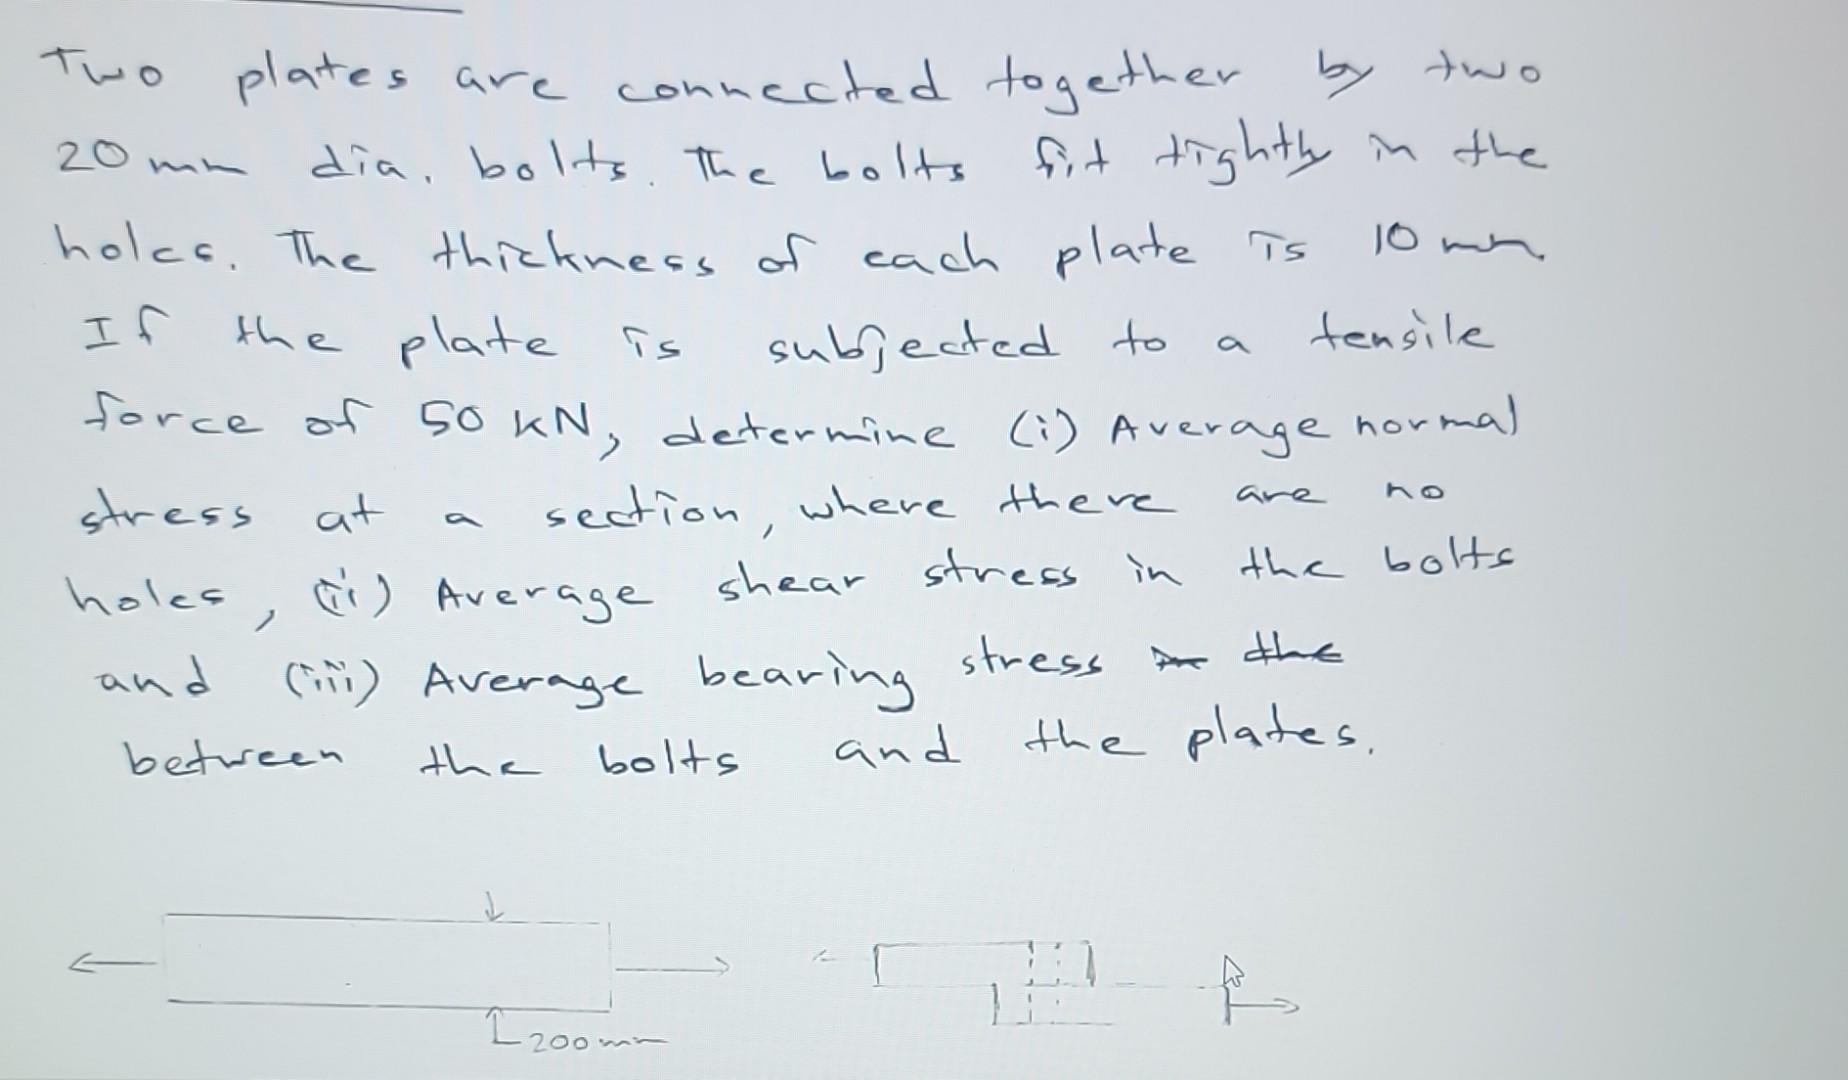 Two plates are connected together by two
20 mm dia. bolts. The bolts fit tightly in the
holes. The thickness of each plate is 10 mm.
If the plate is subjected to a tensile
force of 50 kN, determine (i) Average normal
stress at a section, where there are no
holes, (ii) Average shear stress in the bolts
and (iii) Average bearing stress in the
between the bolts and the plates.
200 mm